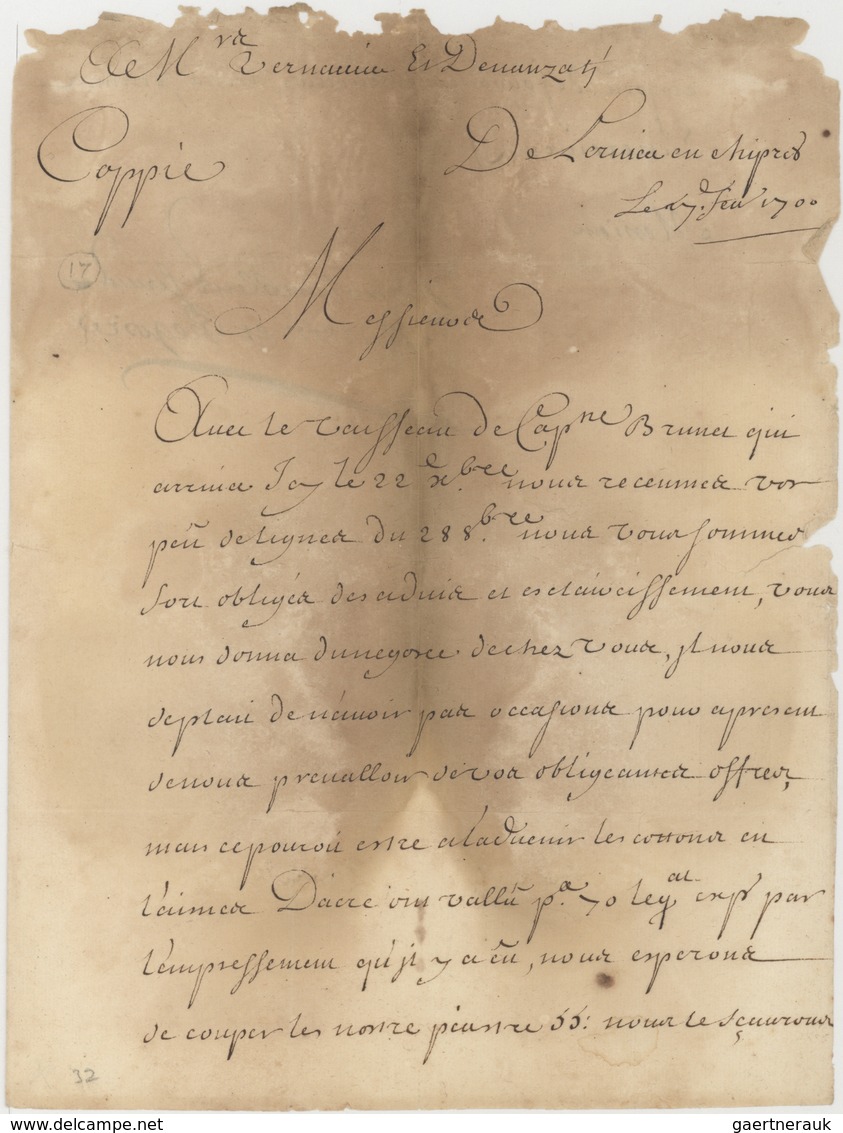 A M.rs Vernacina Et Donanzatj
Coppie
De Lernica en chipres
Le 17.e feu 1700
17
Messieurs
Auec le Vaisseau de Cap.ne Brunet qui
arriua Icy le 22.e x.bre nous receumes vos
peu de lignes du 28 8.bre nous vous sommes
fort obligés des aduis et esclaircissement, vous
nous donna du negoce de chez vous, jl nous
deplait de n'auoir pas occasions pour apresent
de nous preualloir de vos obligeantes offres,
mais ce pouroit estre a laduenir les cottons en
laines Dacre ont vallu p.a 70 le q.al exp. par
lempressement qu'jl y a eu, nous esperons
de couper les nostre piastre 55: nous le sçaurons
32
gaertnerauk gaertnerauk.com